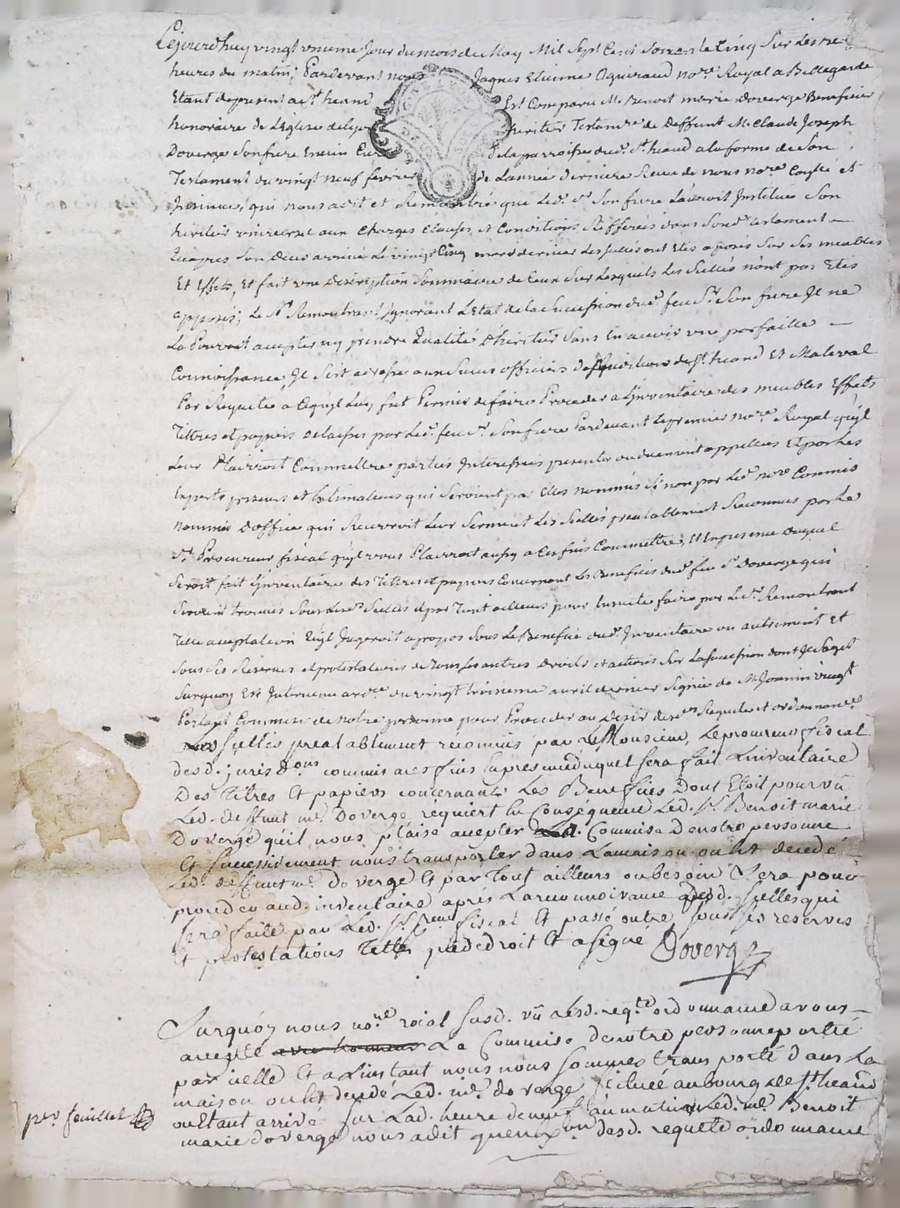 Cejourdhuy vingt unieme Jour du mois de May Mil Sept Cent Soixante Cinq Sur Les
heures du matin, Pardevant nous Jaques Etienne Agniraud nore. Royal a Bellegarde
Etant de present a St. heand Est Comparu Me. Benoit marie Doverge Beneficier
honoraire de Leglise de heritier Testamre. de Deffunt Me. Claude Joseph
Doverge Son frere En vivant Curé de la parroisse dud. St. heand a la forme de Son
Testament du vingt neuf fevrier de Lannée derniere Receu de nous nore. et
qui nous a dit et Remontré que Led. Sr. Son frere Lauroit Institué Son
heritier universel aux Charges Clauses, et Conditions Refferées dans Sond. testament
Son deces arrivé Le vingt Cinq mars dernier Les Scellés ont Etés aposés Sur Ses meubles
Et Effets, Et fait une Description Sommaire de Ceux Sur Lesquels Les Scellés n'ont pas Etés
apposés; Le Sr. Remontrant Ignorant L'Etat de la Succession dud. feu Sr. Son frere Il ne
La Pouroit accepter ny prendre Qualité D'héritier Sans En avoir une parfaitte
Connoissance, Il Seroit adressé aux Sieurs officiers des Jurisdictions de St. heand Et Malleval
Par Requette a Ce qu'il Luy fut Permis de faire Proceder a L'inventaire des meubles Effets
Titres et papiers delaissés par Led. feu Sr. Son frere Pardevant Le premier nore. Royal qu'il
Leur Plairroit Commettre parties Interessées presentes ou duement appellées Et par Les
Experts priseurs et Estimateurs qui Seroient par Elles nommés Si non par Led. nore. Commis
nommés D'office qui Recevroit Leur Serment Les Scellés prealablement Reconnus par Le
Sr. Procureur fiscal qu'il vous Plairroit aussy a Ces fins Commettre, Et En presence Duquel
Seroit fait L'inventaire des Titres et papiers Concernant Les Benefices dud. feu Sr. Doverge qui
Seroient trouvés Sous Lesd. Scellés et par Tout ailleurs pour Ensuite faire par Led. Sr. Remontrant
Telle acceptation Qu'il Jugeroit a propos Sous Le Benefice dud. Inventaire ou autrement Et
Sous Ses Reserves et protestations de Tous Les autres Droits et actions Sur La Succession dont Il S'agit
Surquoy Est Intervenu du vingt troisieme avril dernier Signée de Mr. Jovin
Portant Commise de notre personne pour Proceder au Desir desd. Requete et ordonnance
Les scellés prealablement reconnus par le Monsieur Le procureur fiscal
desd. jurisdons commis a ces fins En presence duquel sera fait Linventaire
Des titres Et papiers concernants Les Benefices Dont Etoit pourvû
Led. deffunt me. Doverge, requiert En Consequence Led. Sr. Benoit marie
Doverge qu'il nous plaise accepter La Commise De notre personne
Et successivement nous transporter dans La maison ou Est decedé
Led. deffunt me. doverge Et par tout ailleurs ou besoin sera pour
proceder aud. inventaire après La reconnoissance desd. scelles qui
sera faite par Led. Sr. Pr. fiscal Et passé outre sous ses reserves
Et protestations Telles que de droit Et a signé Doverge
Surquoy nous nore. roial susd. vû Lesd. reqte. ordonnance avons
accepté La Commise de notre personne portée
par icelle Et a Linstant nous nous sommes transporté dans La
maison ou Est decedé Led. me. doverge scituée au bourg de St. heand
ou Etant arrivé sur Lad. heure de neuf du matin Led. me. Benoit
marie doverge nous a dit desd. requete ordonnance
per. feuillet